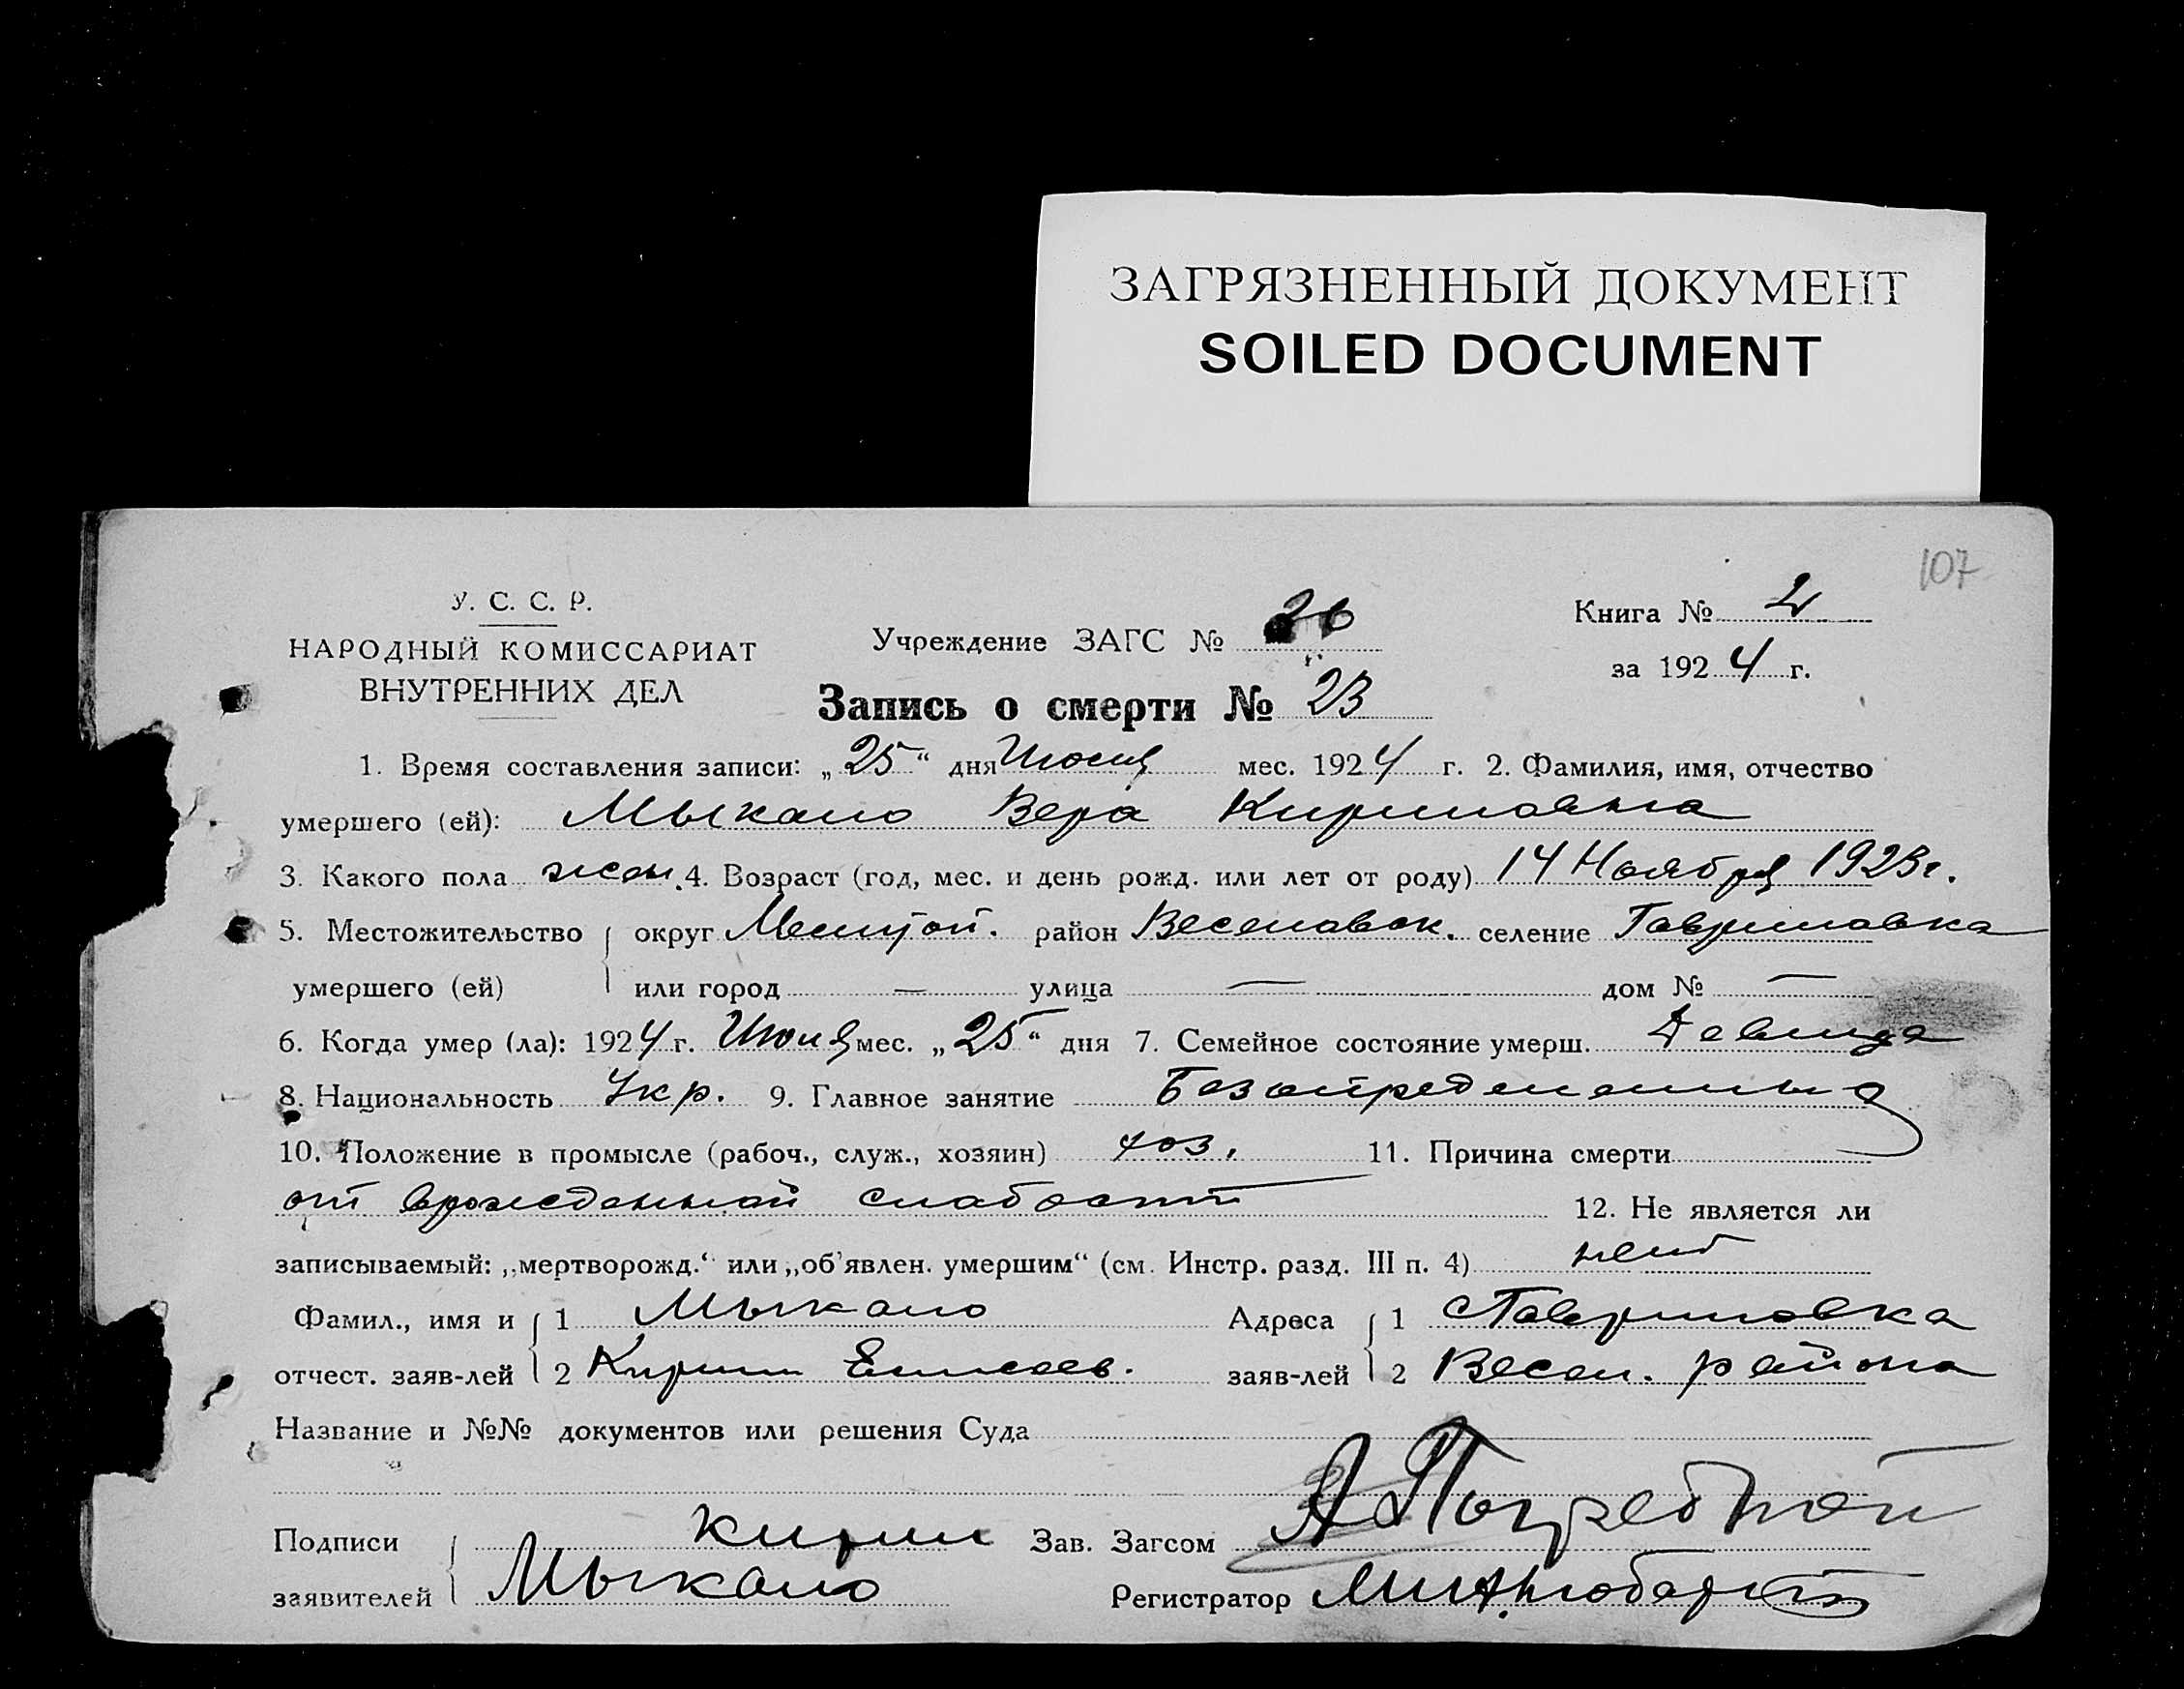 ЗАГРЯЗНЕННЫЙ ДОКУМЕНТ
SOILED DOCUMENT
107
У. С. С. Р.
НАРОДНЫЙ КОМИССАРИАТ
ВНУТРЕННИХ ДЕЛ
Учреждение ЗАГС № 26
Книга № 2
за 1924 г.
Запись о смерти № 23
1. Время составления записи: „25“ дня Июня мес. 1924 г. 2. Фамилия, имя, отчество
умершего (ей): Мыкало Вера Кириловна
3. Какого пола жен. 4. Возраст (год, мес. и день рожд. или лет от роду) 14 Ноября 1923 г.
5. Местожительство округ Мелитоп. район Веселовск. селение Гавриловка
умершего (ей) или город — улица — дом № —
6. Когда умер (ла): 1924 г. Июня мес. „25“ дня 7. Семейное состояние умерш. Девица
8. Национальность Укр. 9. Главное занятие
10. Положение в промысле (рабоч., служ., хозяин) хоз. 11. Причина смерти
от врожденной слабости 12. Не является ли
записываемый: „мертворожд.“ или „об'явлен. умершим“ (см. Инстр. разд. III п. 4) нет
Фамил., имя и 1 Мыкало Адреса 1 Гавриловка
отчест. заяв-лей 2 Кирил Елисеев. заяв-лей 2 Весел. района
Название и №№ документов или решения Суда
Подписи Кирил Зав. Загсом А Погребной
заявителей Мыкало Регистратор